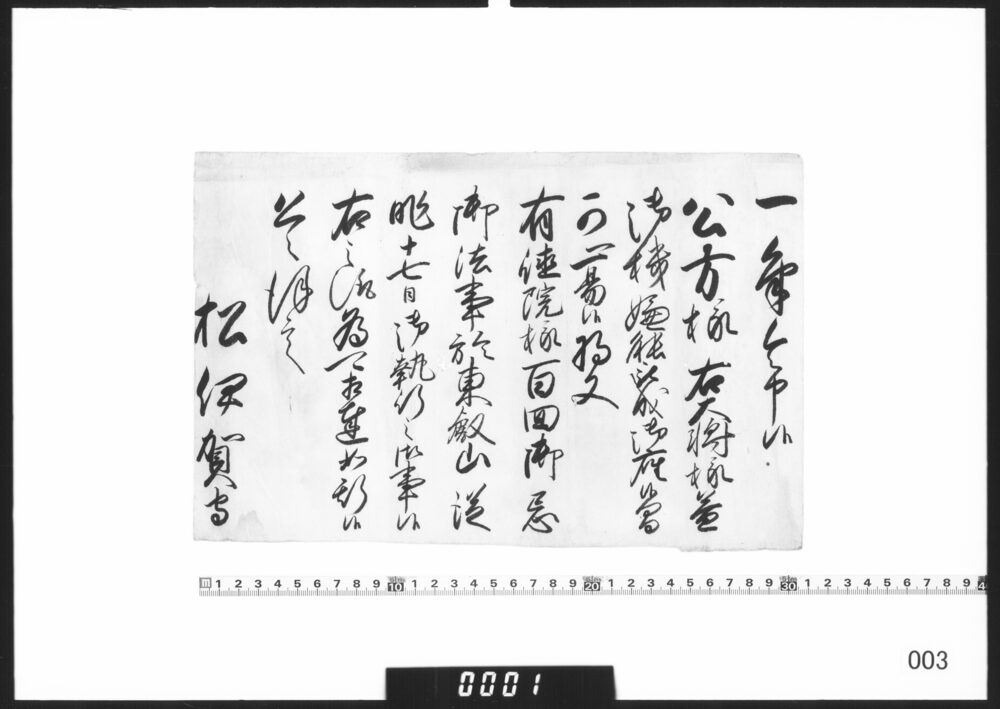 一筆令申候
公方様右大将様益
御機嫌能被成御座候間
可心易候将又
有徳院様百回御忌
御法事於東叡山従
昨十七日御執行之御事候
右之趣為可相達如斯候
恐々謹言
松伊賀守
m 1 2 3 4 5 6 7 8 9 10 1 2 3 4 5 6 7 8 9 20 1 2 3 4 5 6 7 8 9 30 1 2 3 4 5 6 7 8 9 4
003
0001